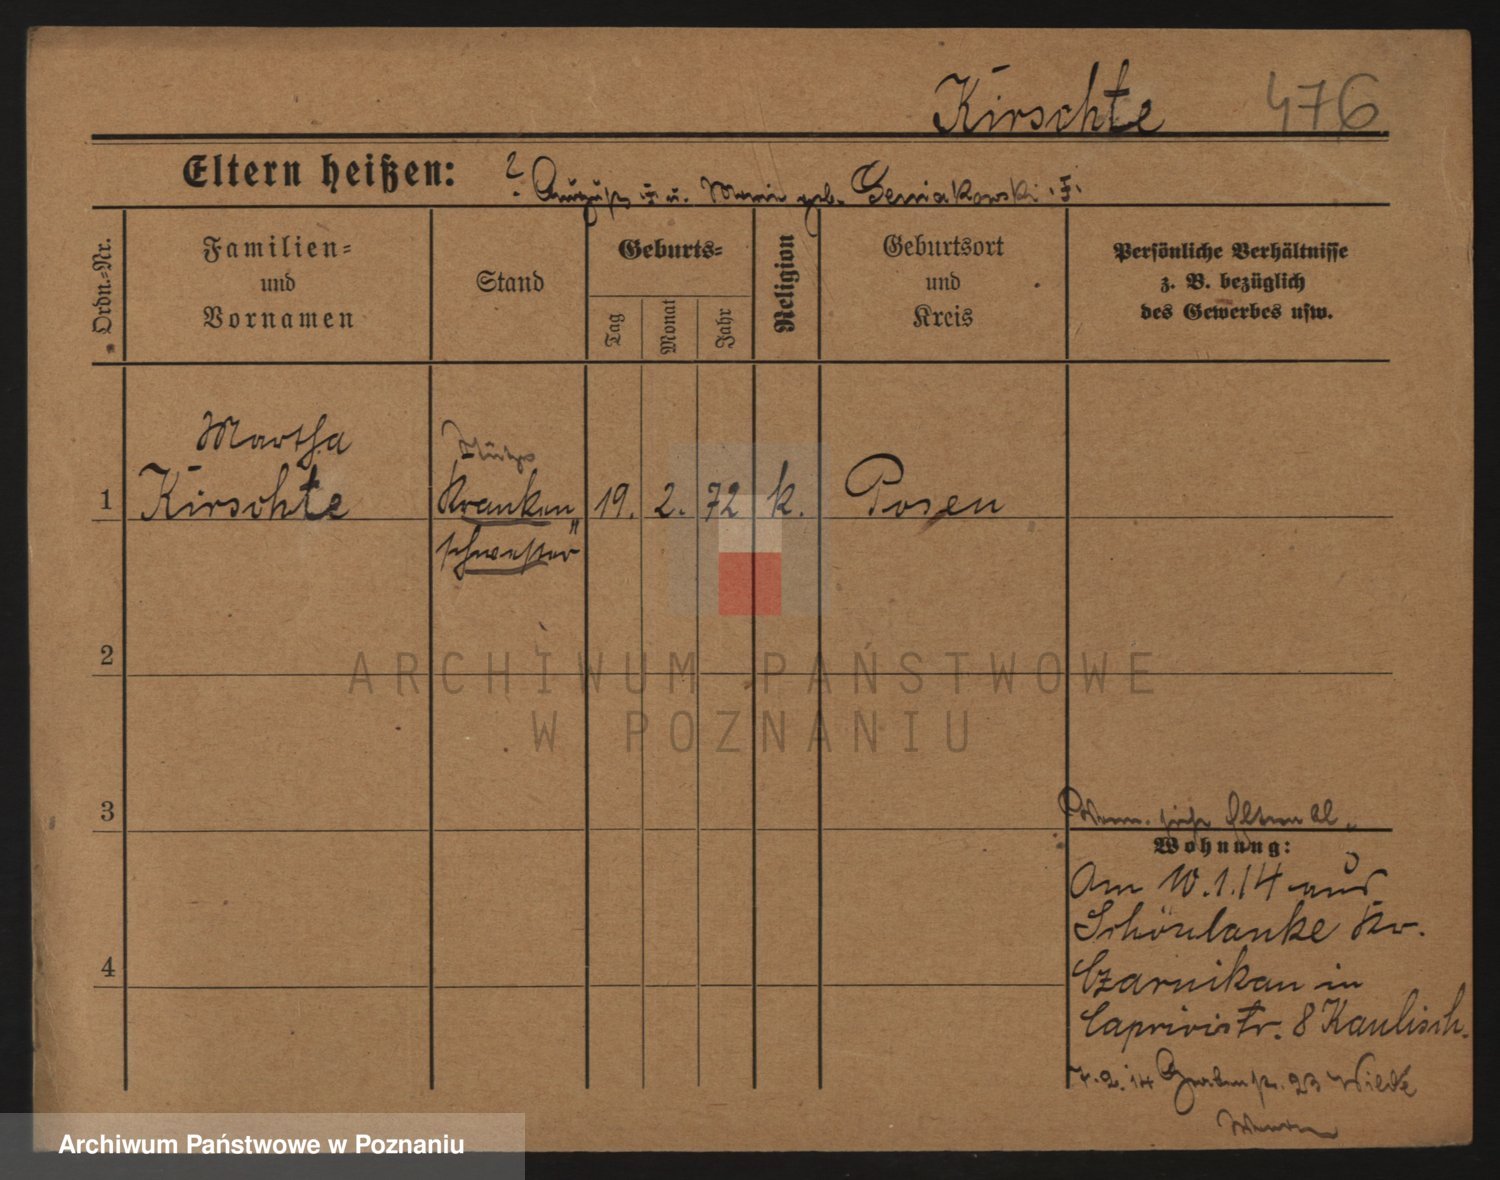 Kirschte 476
Eltern heißen: ? August ✝ u. Marie geb. Gerniakowski ✝.
Ordn.=Nr.
Familien=
und
Vornamen
Stand
Geburts=
Tag
Monat
Jahr
Religion
Geburtsort
und
Kreis
Persönliche Verhältnisse
z. B. bezüglich
des Gewerbes usw.
Martha
1 Kirschte Kranken 19. 2. 72 k. Posen
schwester
2
3
Wohnung:
Am 10.1.14 aus
Schönlanke Kr.
Czarnikau in
Caprivistr. 8 Kaulisch.
4
7.2.14 23
ARCHIWUM PAŃSTWOWE
W POZNANIU
Archiwum Państwowe w Poznaniu